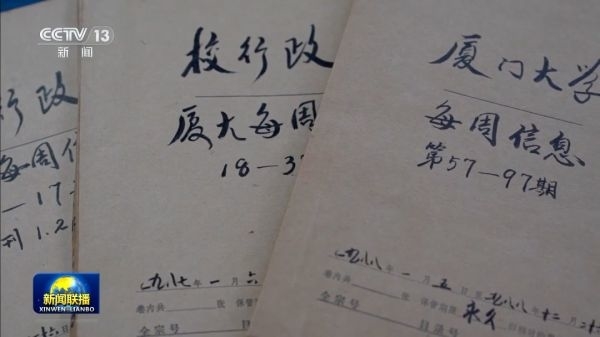 CCTV 13
新闻
行政
每周信
— 17
刊 1.2
校行政
厦大每周
18—3
一九八七年一月六
卷内共 张 保管
全宗号
厦门大学
每周信息
第57—97期
一九八八年一月五日至一九八八年十二月二十
卷内共 张 保管期限 永久
全宗号 目录号
新闻联播
XINWEN LIANBO